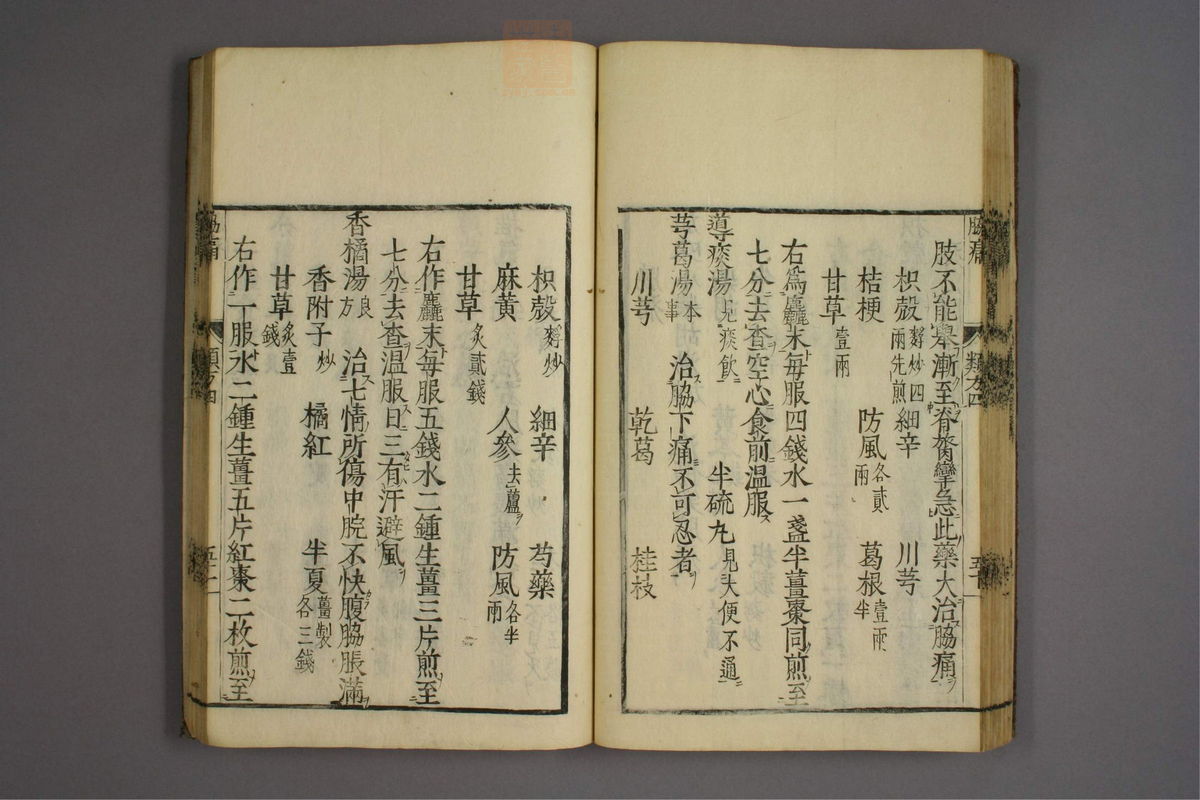 肢不能舉漸至脊膂攣急此藥大治脇痛
枳殼麩炒四兩先煎 細辛 川芎
桔梗 防風各貳兩 葛根壹兩半
甘草壹兩
右爲麤末每服四錢水一盞半薑棗同煎至
七分去査空心食前溫服
導痰湯見痰飮 半硫丸見大便不通
芎葛湯本事 治脇下痛不可忍者
川芎 乾葛 桂枝
枳殼麩炒 細辛 芍藥
麻黃 人參去蘆 防風各半兩
甘草炙貳錢
右作麤末每服五錢水二鍾生薑三片煎至
七分去査溫服日三有汗避風
香橘湯良方 治七情所傷中脘不快腹脇脹滿
香附子炒 橘紅 半夏薑製各三錢
甘草炙壹錢
右作一服水二鍾生薑五片紅棗二枚煎至